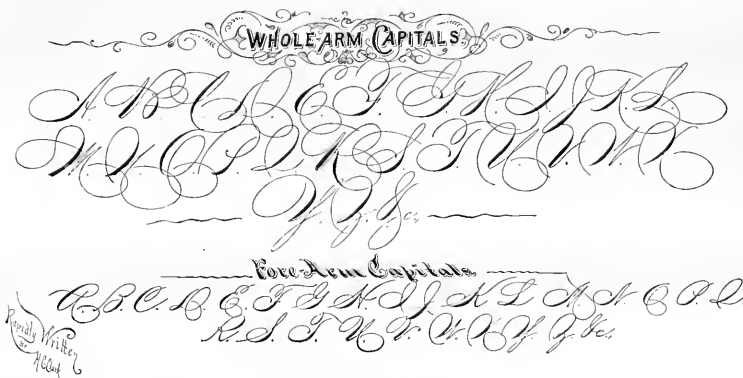 WHOLE-ARM CAPITALS.
A. B. C. D. E. F. G. H. I. J. K. L.
M. N. O. P. Q. R. S. T. U. V. W. X.
Y. Z. &c.,
Fore-Arm Capitals.
A. B. C. D. E. F. G. H. I. J. K. L. M. N. O. P. Q.
R. S. T. U. V. W. X. Y. Z. &c.,
Rapidly Written
BY
H.C. Clark